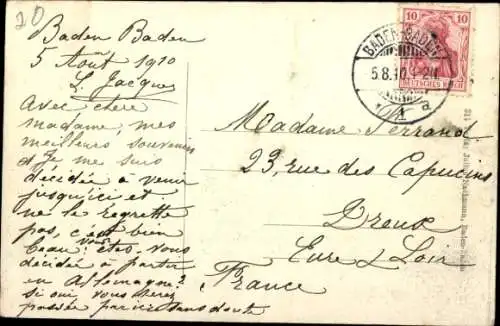 20
Baden Baden
5 Août 1910
L. Jacques
Avec chère
madame, mes
meilleurs souvenirs
Je me suis
décidée à venir
jusqu'ici et
ne le regrette
pas, c'est bien
beau. êtes-vous
vous
décidée à partir
en Allemagne?
si oui, vous
passée par ici sans doute
Madame Ferrand
23, rue des Capucins
Dreux
Eure & Loir
France
BADEN-BADEN
5.8.10
a
10 10
DEUTSCHES REICH